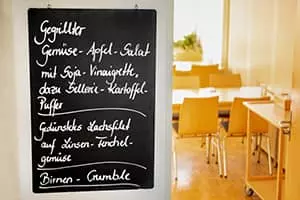 Gegrillter
Gemüse-Apfel-Salat
mit Soja-Vinaigrette,
dazu Sellerie-Kartoffel-
Puffer
Gedünstetes Lachsfilet
auf Linsen-Fenchel-
gemüse
Birnen-Crumble